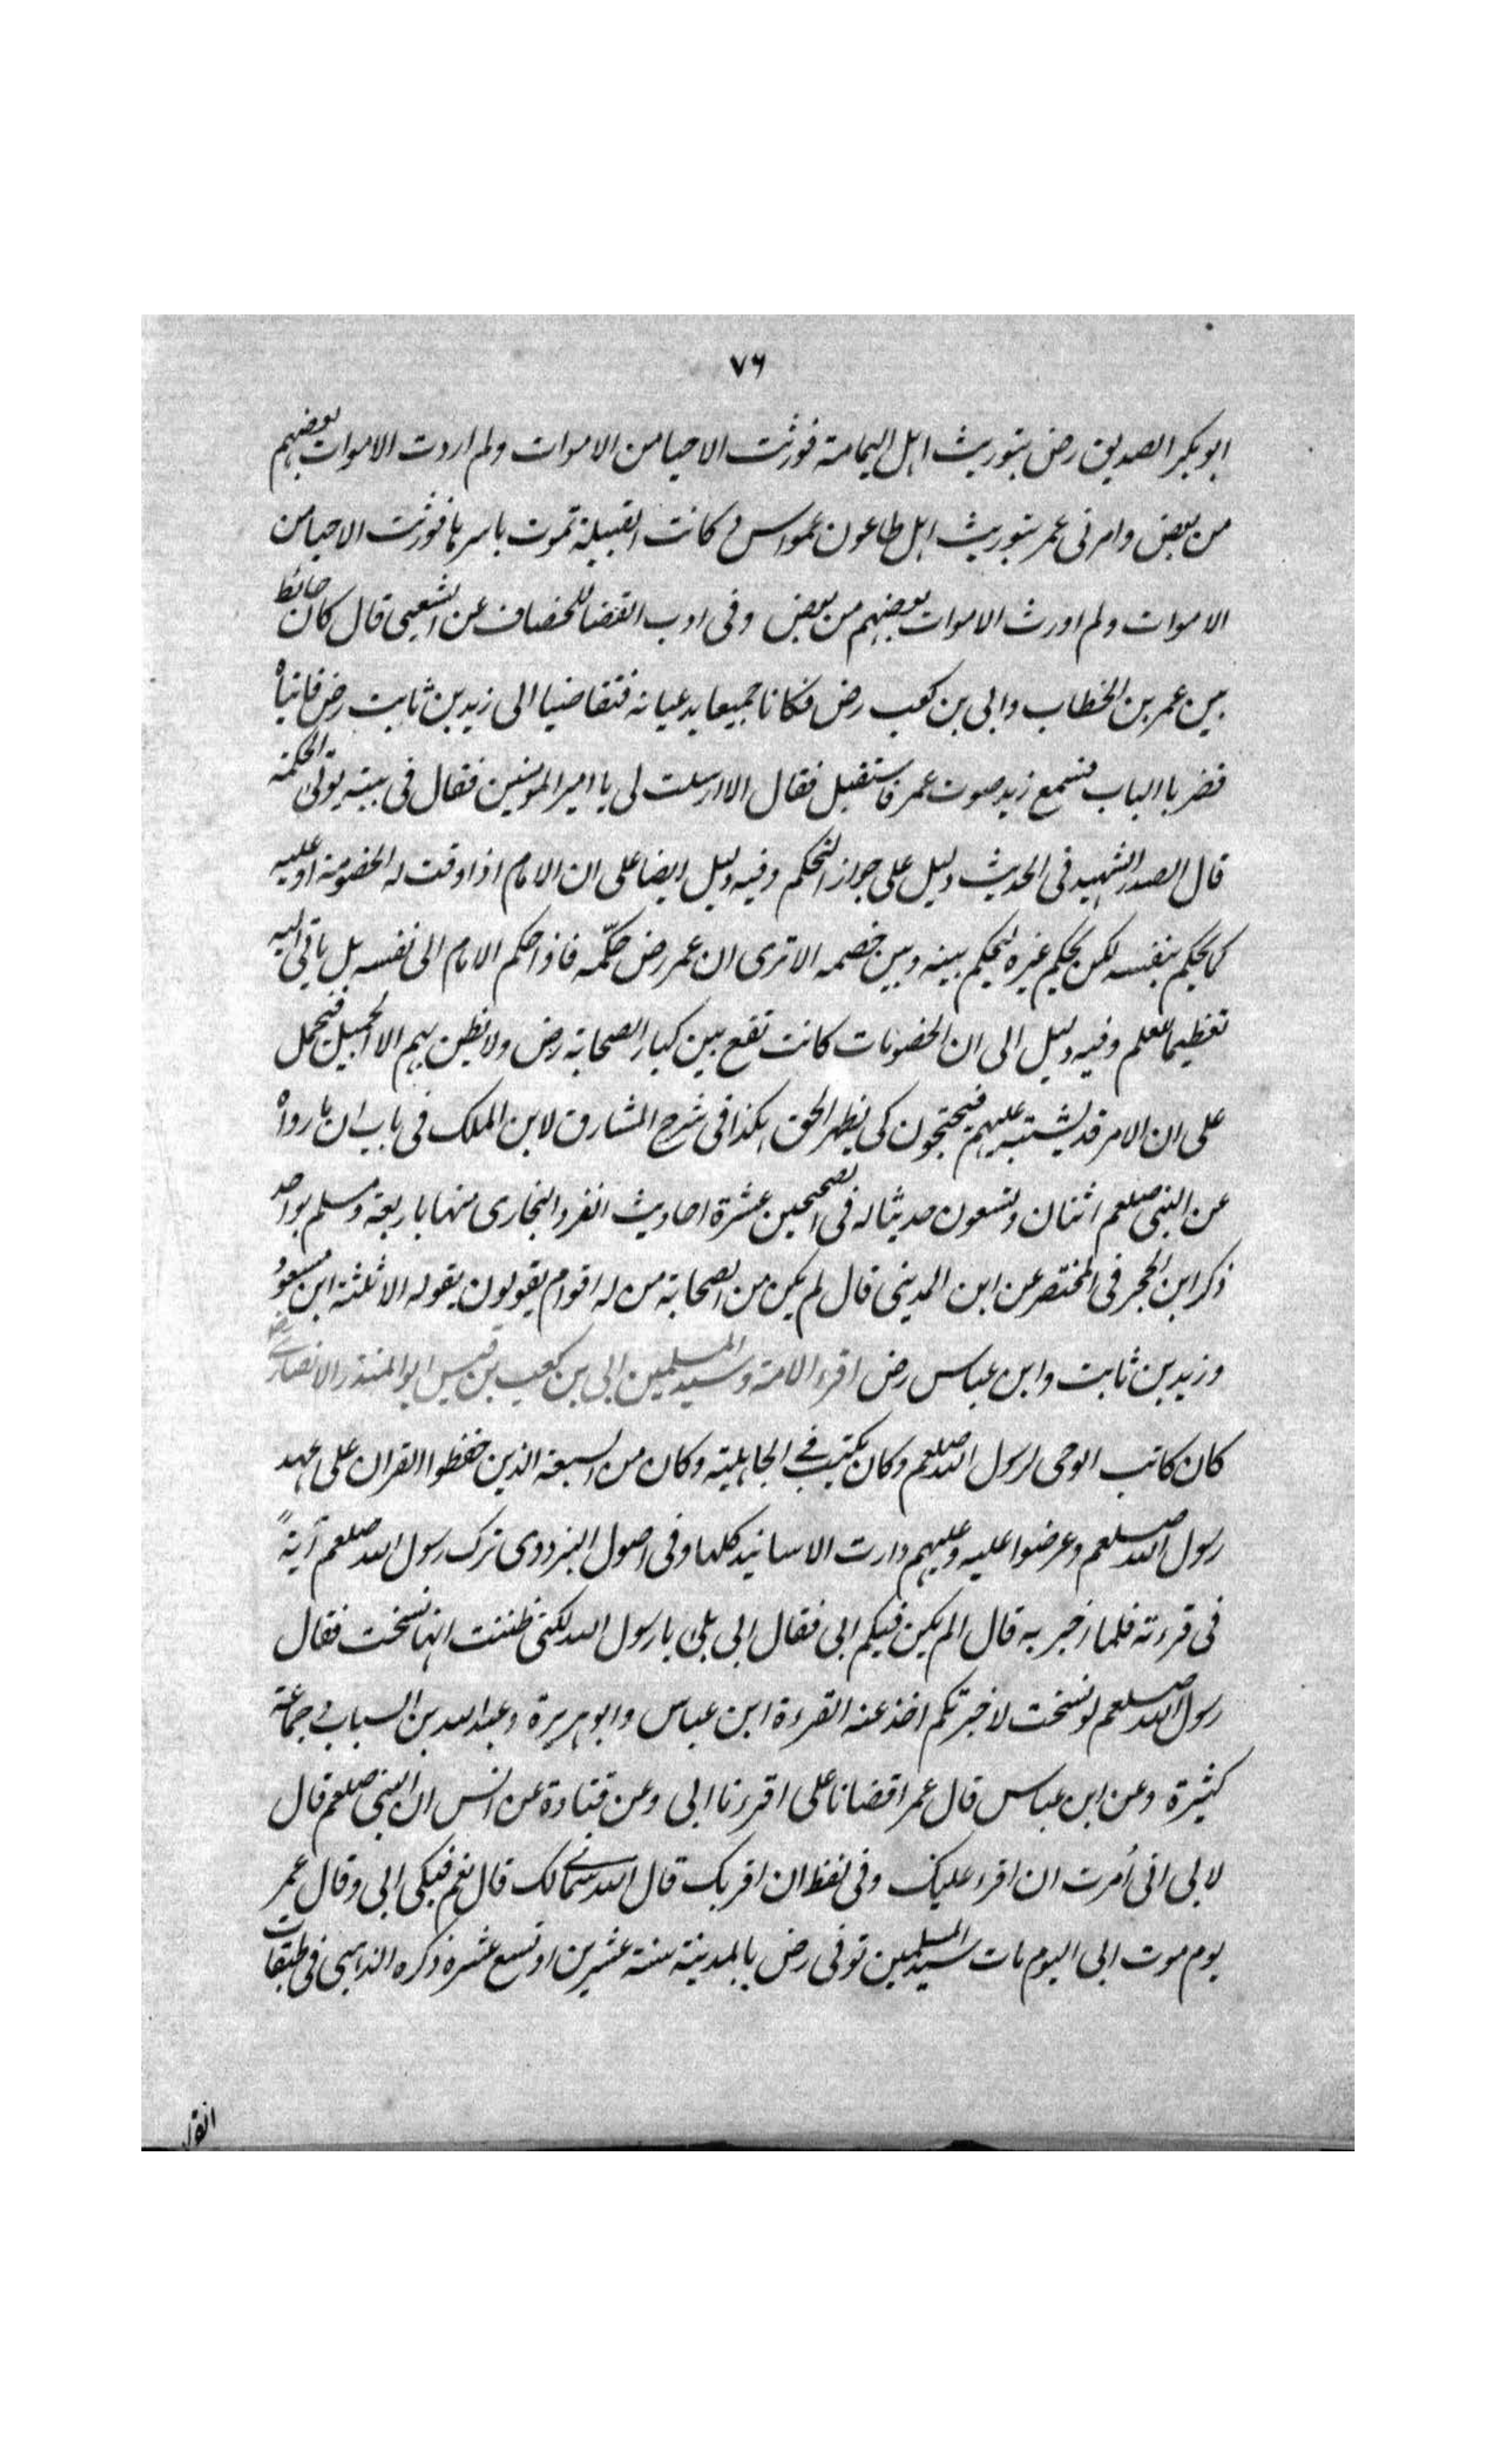 ٧٦
ابو بكر الصديق رض بتوريث اهل اليمامة فورثت الاحيا من الاموات ولم اردت الاموات بعضهم
من بعض وامرنى عمر بتوريث اهل طاعون عمواس كانت القبيلة تموت باسرها فورثت الاحيا من
الاموات ولم اورث الاموات بعضهم من بعض وفى ادب القضا للخصاف عن الشعبى قال كان حائط
بين عمر بن الخطاب وابى بن كعب رض فكانا جميعا يدعيانه فتقاضيا الى زيد بن ثابت رض فاتياه
فضربا الباب فسمع زيد صوت عمر فاستقبل فقال الا ارسلت لى يا امير المؤمنين فقال فى بيته يوتى الحكمة
قال الصدر الشهيد فى الحديث دليل على جواز التحكم وفيه دليل ايضا على ان الامام اذا وقت له الخصومة او عليه
كما يحكم بنفسه لكن يحكم غيره ليحكم بينه وبين خصمه الا ترى ان عمر رض حكّمه فاذا حكم الامام الى نفسه بل ياتى اليه
تعظيما للعلم وفيه دليل الى ان الخصومات كانت تقع بين كبار الصحابة رض ولا يظن بهم الا الجميل فيحمل
على ان الامر قد يشتبه عليهم فيحتجون كى يظهر الحق هكذا فى شرح المشارق لابن الملك فى باب ان ما رواه
عن النبى صلعم اثنان وتسعون حديثا له فى الصحيحين عشرة احاديث انفرد البخارى منها باربعة ومسلم بواحد
ذكر ابن الحجر فى المختصر عن ابن المدينى قال لم يكن من الصحابة من له اقوام يقولون بقوله الا ثلثة ابن مسعود
وزيد بن ثابت وابن عباس رض اقرء الامة وسيد المسلمين ابى بن كعب بن قيس ابو المنذر الانصارى
كان كاتب الوحى لرسول الله صلعم وكان يكتب فى الجاهلية وكان من السبعة الذين حفظوا القران على عهد
رسول الله صلعم وعرضوا عليه وعليهم دارت الاسانيد كلها وفى اصول البزدوى ترك رسول الله صلعم آيةً
فى قرءته فلما اخبر به قال الم يكن فيكم ابى فقال ابى بلى يا رسول الله لكنى ظننت انها نسخت فقال
رسول الله صلعم لو نسخت لاخبرتكم اخذ عنه القرءة ابن عباس وابو هريرة وعبد الله بن السباب فى جماعة
كثيرة وعن ابن عباس قال عمر اقضانا على اقرءنا ابى وعن قتادة عن انس ان النبى صلعم قال
لابى انى أمرت ان اقرء عليك وفى لفظ ان اقربك قال الله سمانى لك قال نعم فبكى ابى وقال عمر
يوم موت ابى اليوم مات سيد المسلمين توفى رض بالمدينة سنة عشرين او تسع عشرة ذكره الذهبى فى طبقات